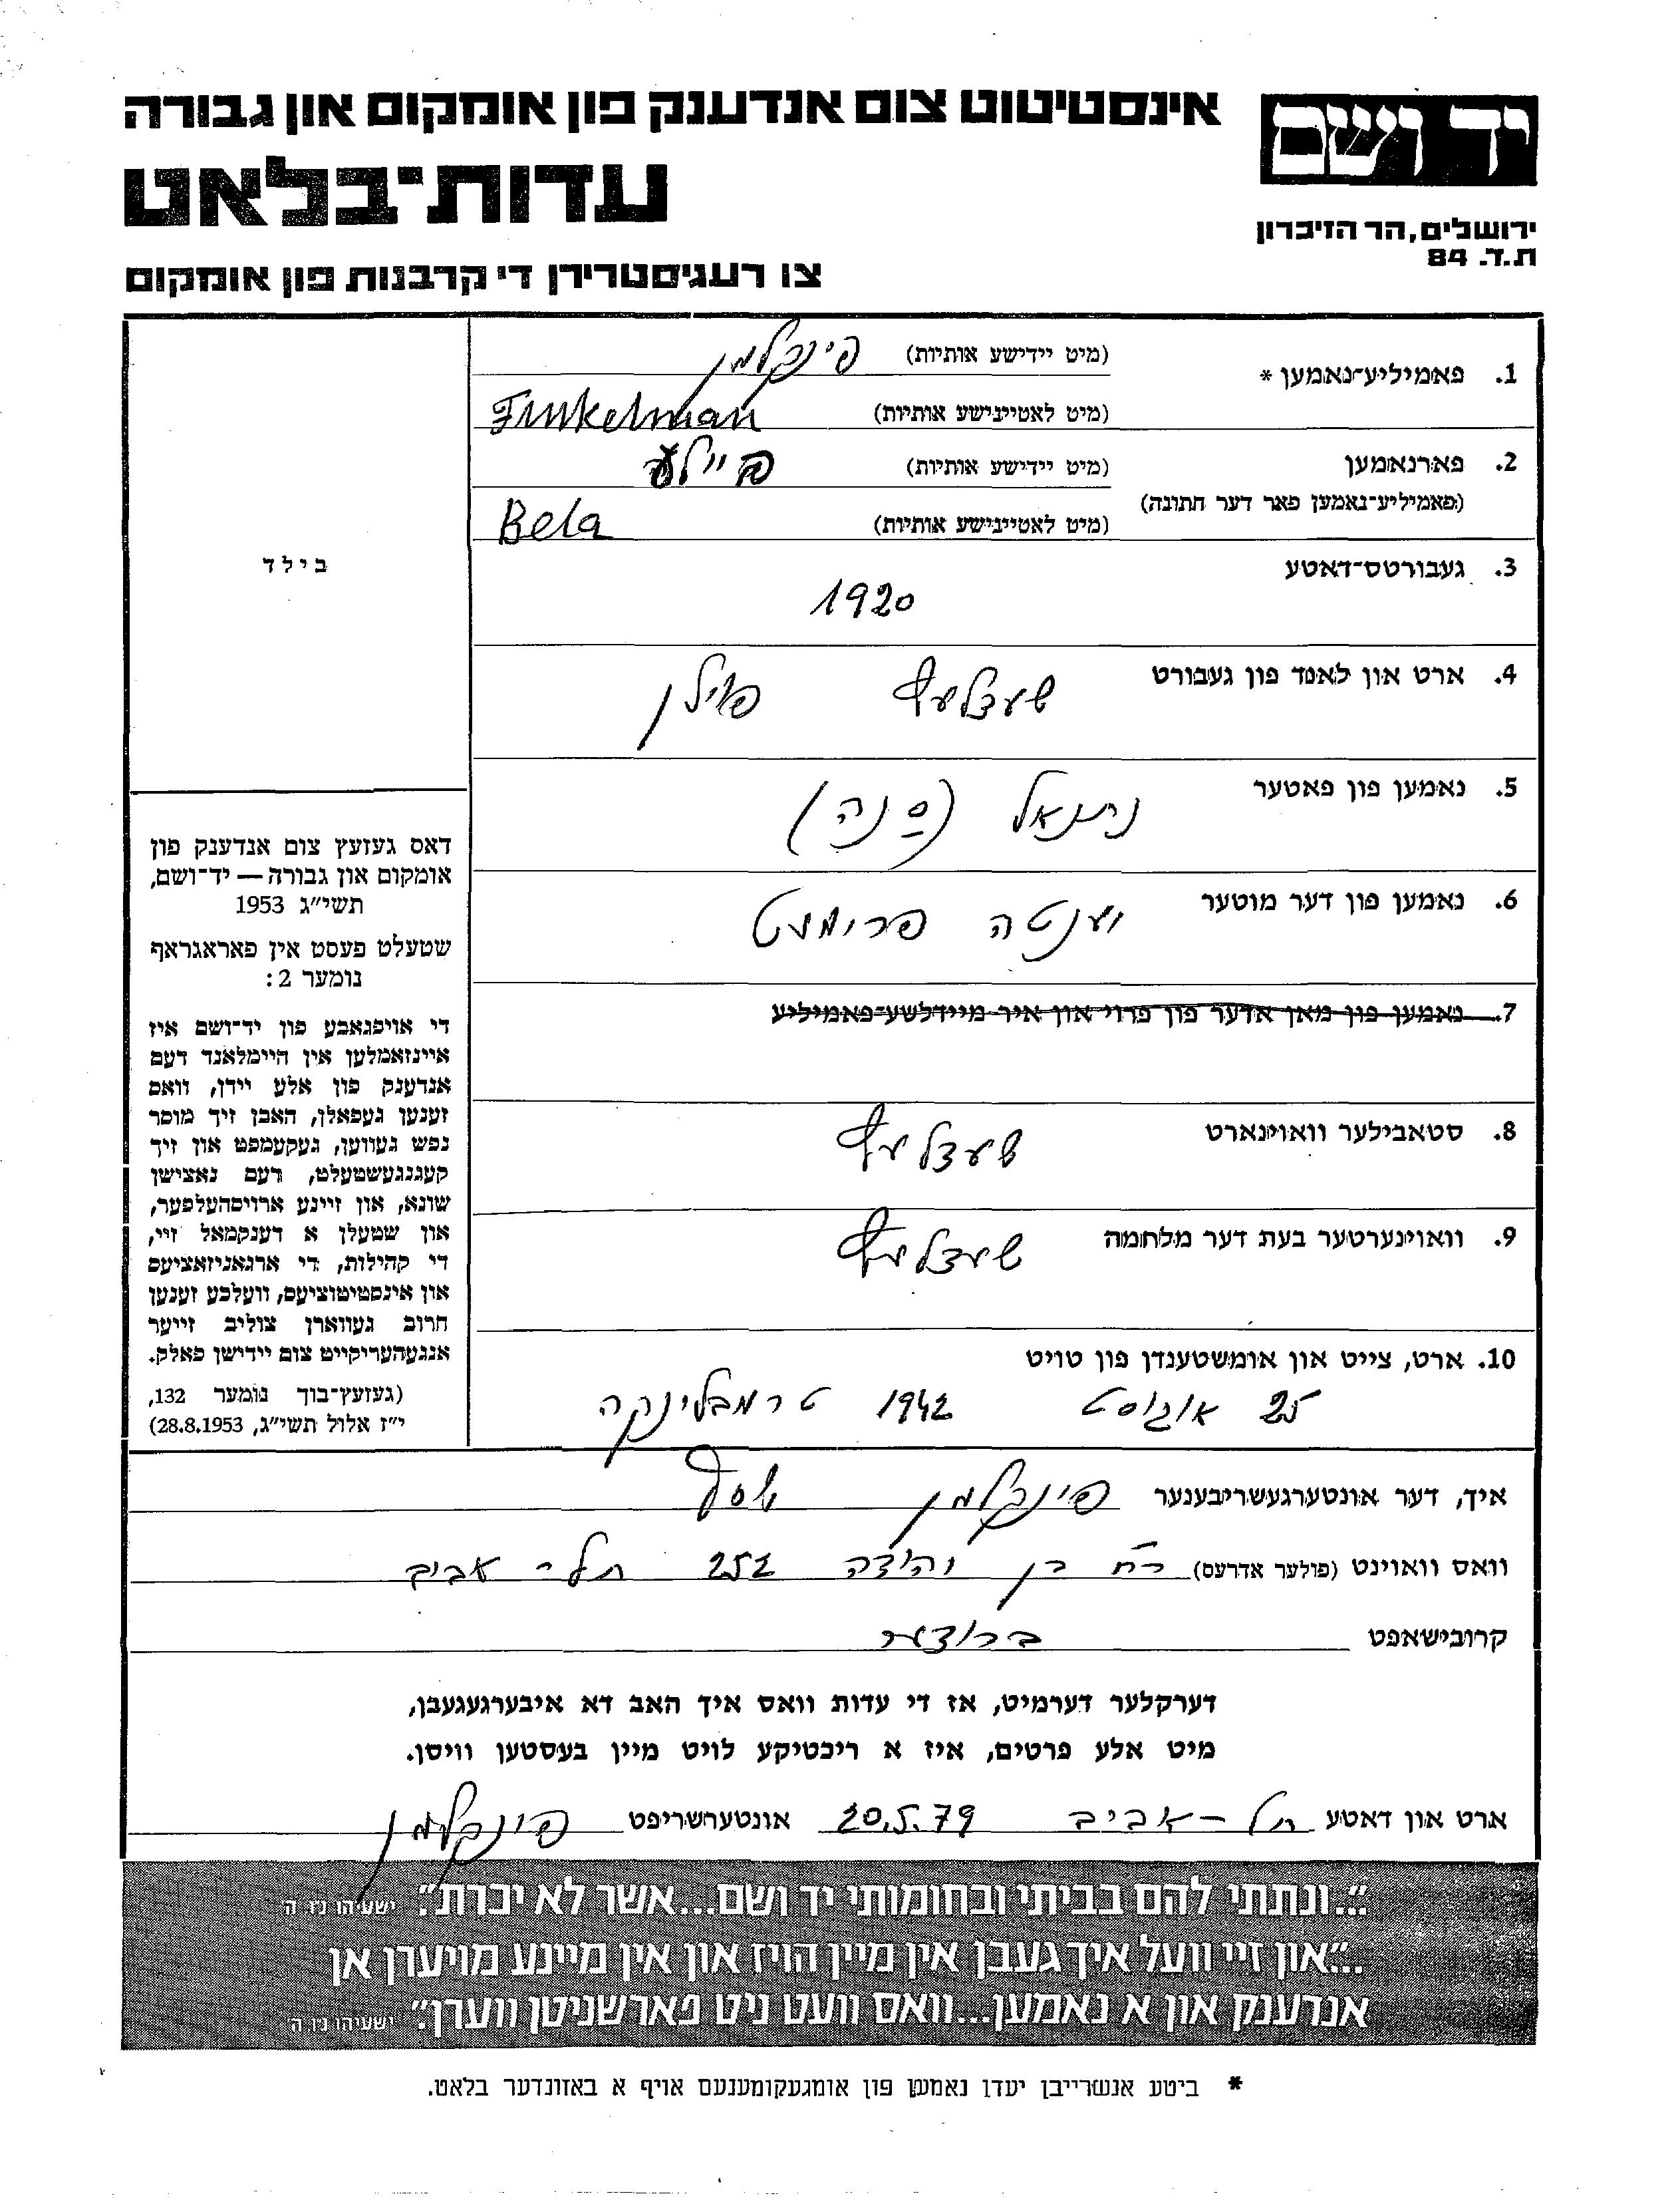 אינסטיטוט צום אנדענק פון אומקום און גבורה
יד ושם
עדות־בלאט
ירושלים, הר הזיכרון
ת.ד. 84
צו רעגיסטרירן די קרבנות פון אומקום
1. פאמיליע־נאמען * (מיט יידישע אותיות) פינקלמן
(מיט לאטיינישע אותיות) Finkelman
2. פארנאמען (מיט יידישע אותיות) ביילע
(פאמיליע־נאמען פאר דער חתונה)
(מיט לאטיינישע אותיות) Bela
בילד
3. געבורטס־דאטע
1920
4. ארט און לאנד פון געבורט שעדלעץ פוילן
5. נאמען פון פאטער
נתנאל (סנה)
6. נאמען פון דער מוטער יענטה פרומעט
7. נאמען פון מאן אדער פון פרוי און איר מיידלשע־פאמיליע
8. סטאבילער וואוינארט שעדלעץ
9. וואוינערטער בעת דער מלחמה שעדלעץ
10. ארט, צייט און אומשטענדן פון טויט
25 אוגוסט 1942 טרמבלינקה
דאס געזעץ צום אנדענק פון
אומקום און גבורה — יד־ושם,
תשי״ג 1953
שטעלט פעסט אין פאראגראף
נומער 2:
די אויפגאבע פון יד־ושם איז
איינזאמלען אין היימלאנד דעם
אנדענק פון אלע יידן, וואס
זענען געפאלן, האבן זיך מוסר
נפש געווען, געקעמפט און זיך
קעגנגעשטעלט, דעם נאצישן
שונא, און זיינע ארויסהעלפער,
און שטעלן א דענקמאל זיי,
די קהילות, די ארגאניזאציעס
און אינסטיטוציעס, וועלכע זענען
חרוב געווארן צוליב זייער
אנגעהעריקייט צום יידישן פאלק.
(געזעץ־בוך נומער 132,
י״ז אלול תשי״ג, 28.8.1953)
איך, דער אונטערגעשריבענער פינקלמן
וואס וואוינט (פולער אדרעס) רח בן יהודה 252 תל־אביב
קרובישאפט ברודער
דערקלער דערמיט, אז די עדות וואס איך האב דא איבערגעגעבן,
מיט אלע פרטים, איז א ריכטיקע לויט מיין בעסטען וויסן.
ארט און דאטע תל־אביב 20.5.79 אונטערשריפט פינקלמן
"...ונתתי להם בביתי ובחומותי יד ושם...אשר לא יכרת." ישעיהו נ״ו ה
..."און זיי וועל איך געבן אין מיין הויז און אין מיינע מויערן אן
אנדענק און א נאמען...וואס וועט ניט פארשניטן ווערן." ישעיהו נ״ו ה
* ביטע אנשרייבן יעדן נאמען פון אומגעקומענעם אויף א באזונדער בלאט.